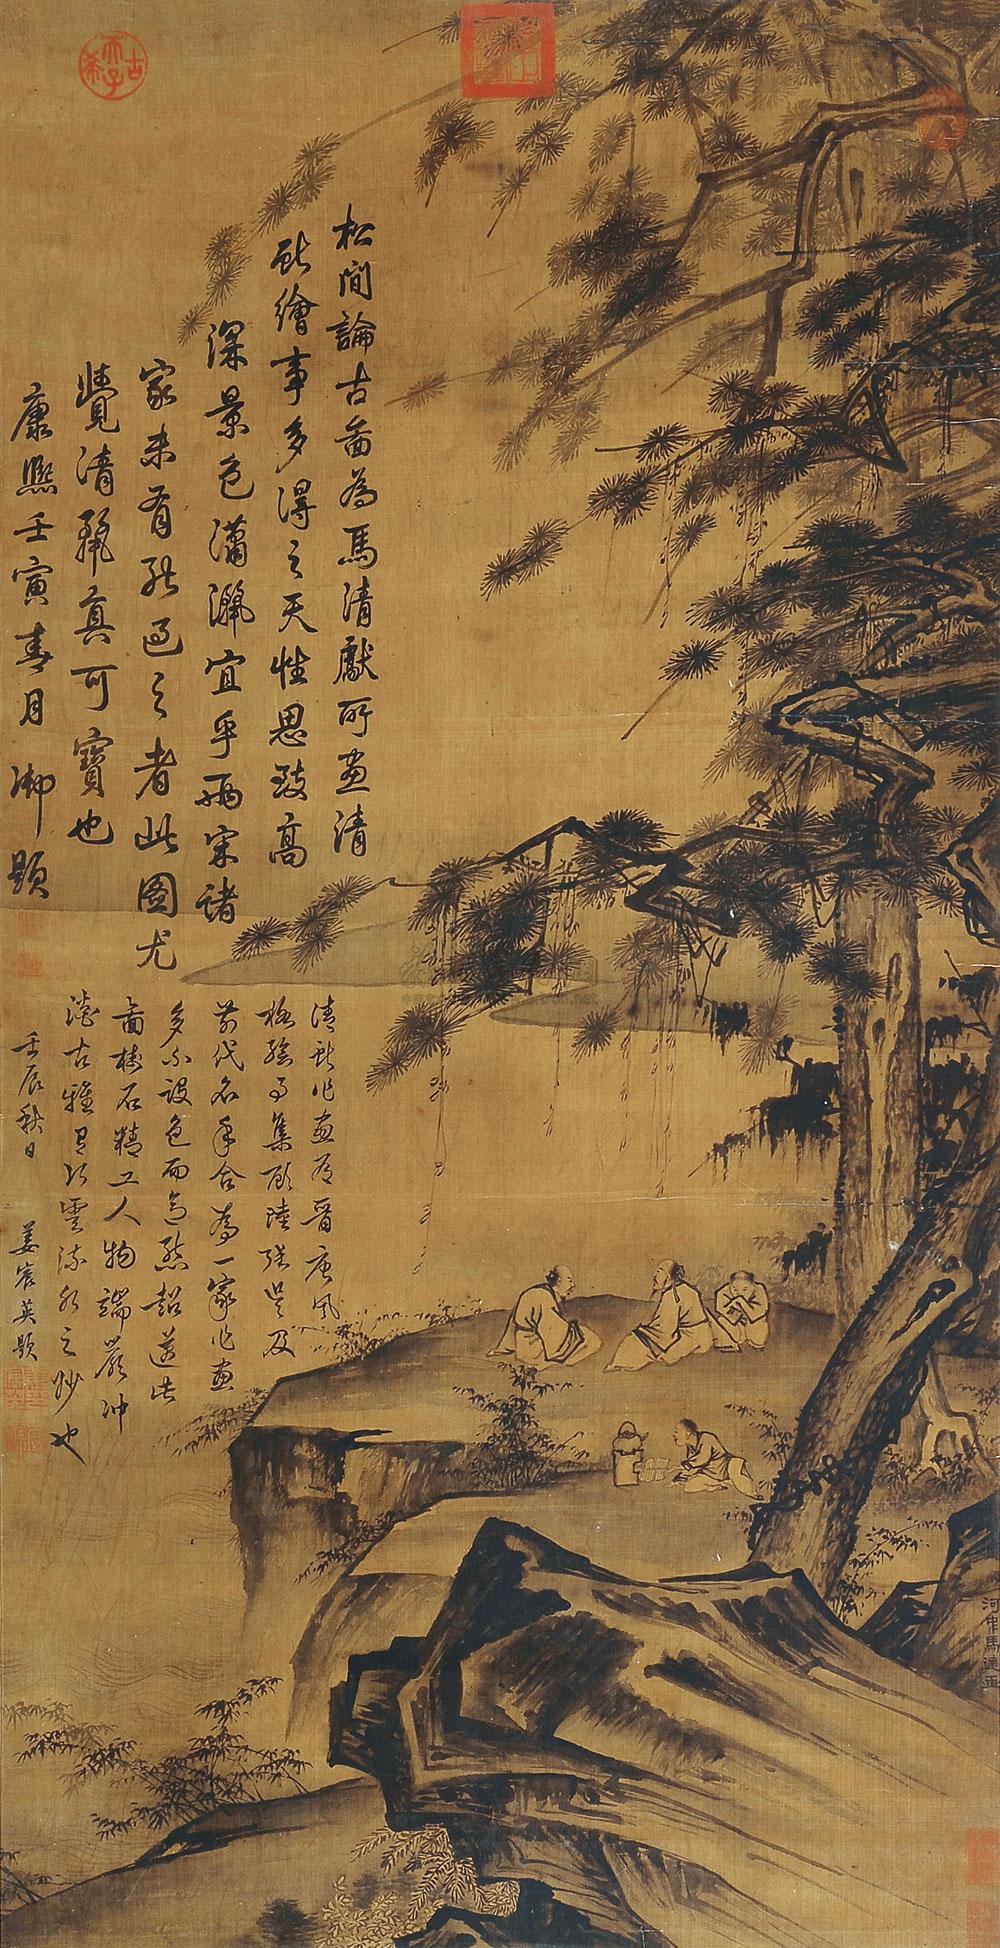 松間論古畫為馬清獻所畫清
獻繪事多得之天性思致高
深景色瀟灑宜乎兩宋諸
家未有能過之者此圖尤
覺清麗真可寶也
康熙壬寅春月御題
清獻作畫有晉唐風
格繪事集顧陸張吳及
前代名手合為一家作畫
多不設色而意態超逸此
圖樹石精工人物端嚴沖
澹古雅有行雲流水之妙也
壬辰秋日
姜宸英題
河中馬遠畫
古希天子